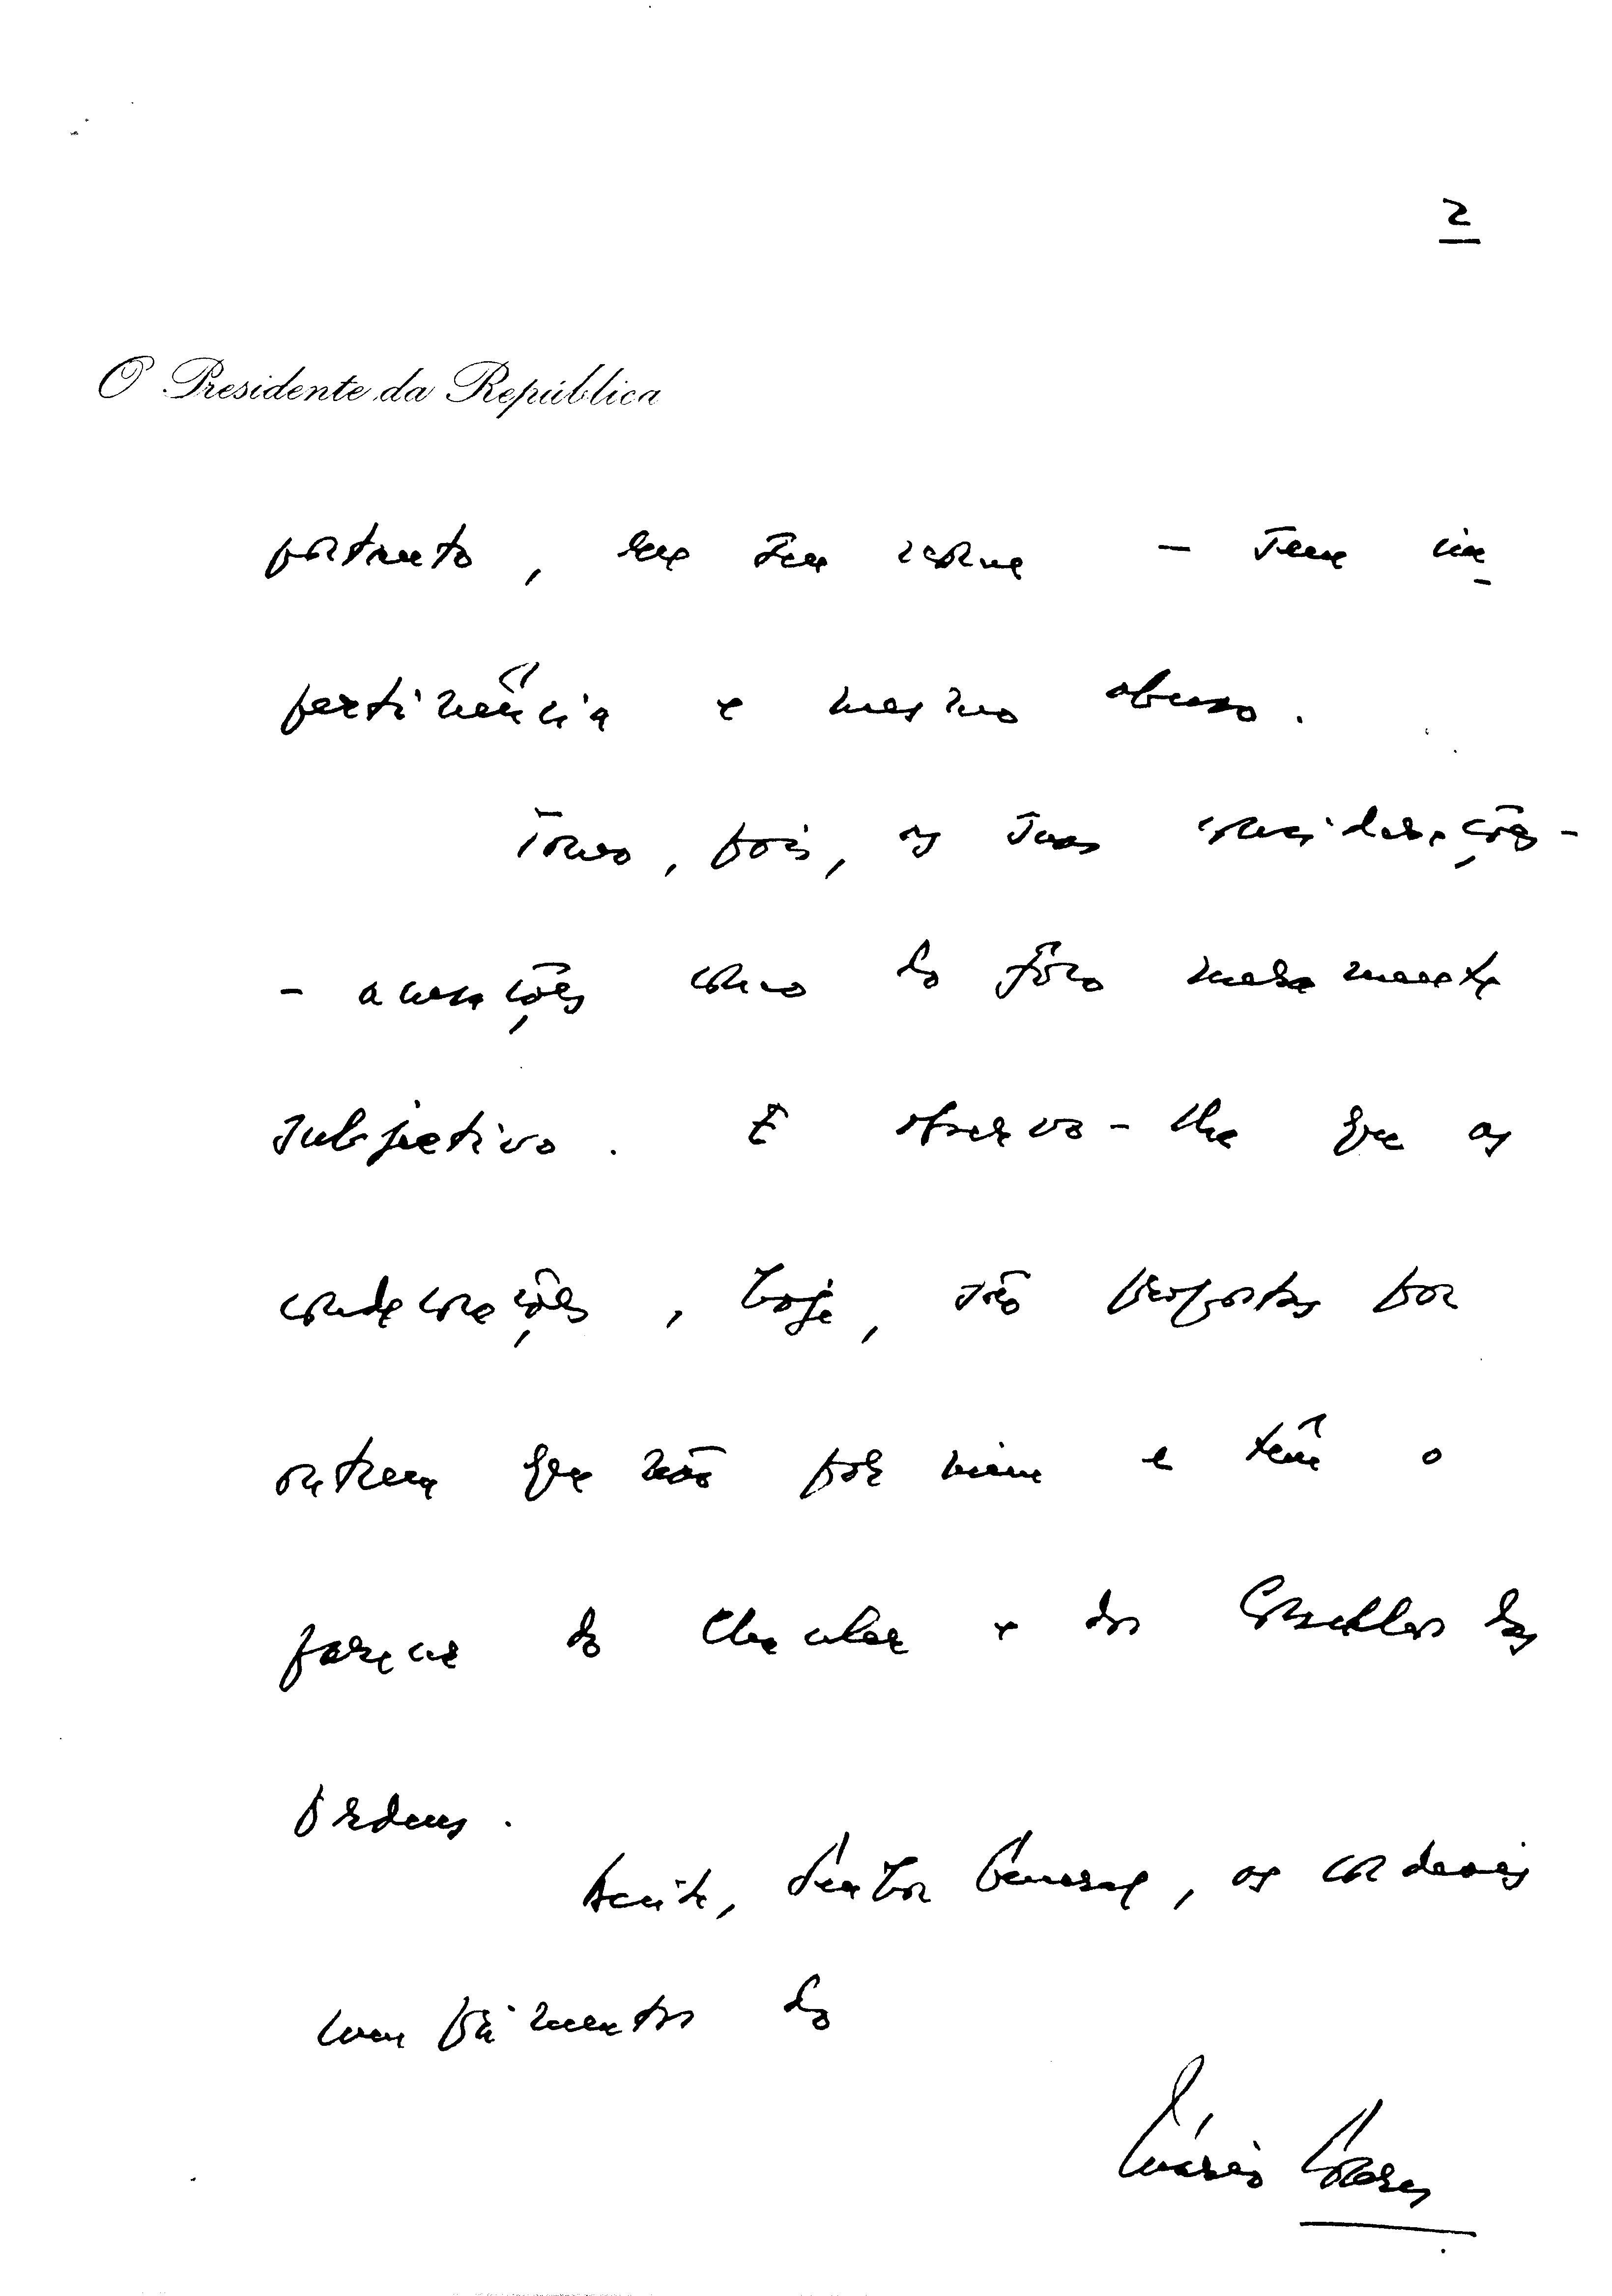 2
O Presidente da República
portanto, em seu nome — sem im-
pertinência e mesmo abuso.
Tomo, pois, as suas considerações -
- acusações como do fôro meramente
subjetivo. E observo-lhe que as
condecorações, hoje, são propostas por
outrem que não por mim e têm o
parecer do Chanceler e dos Conselhos das
Ordens.
Aceite, Senhor General, os cordeais
cumprimentos do
Mário Soares